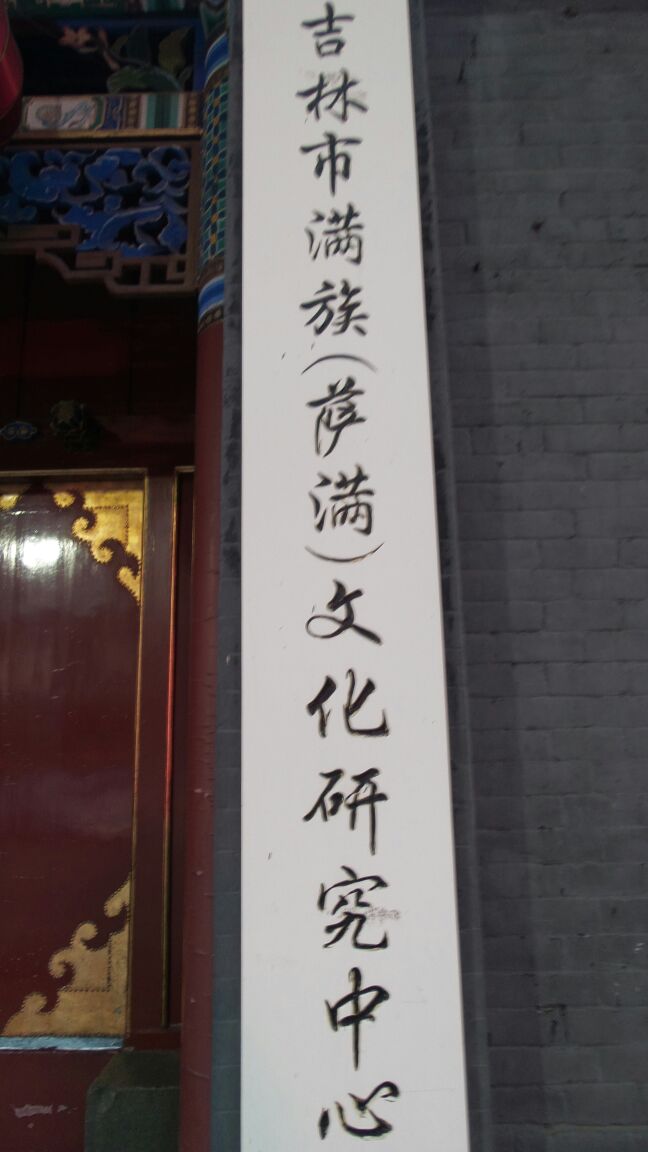 吉林市满族(萨满)文化研究中心